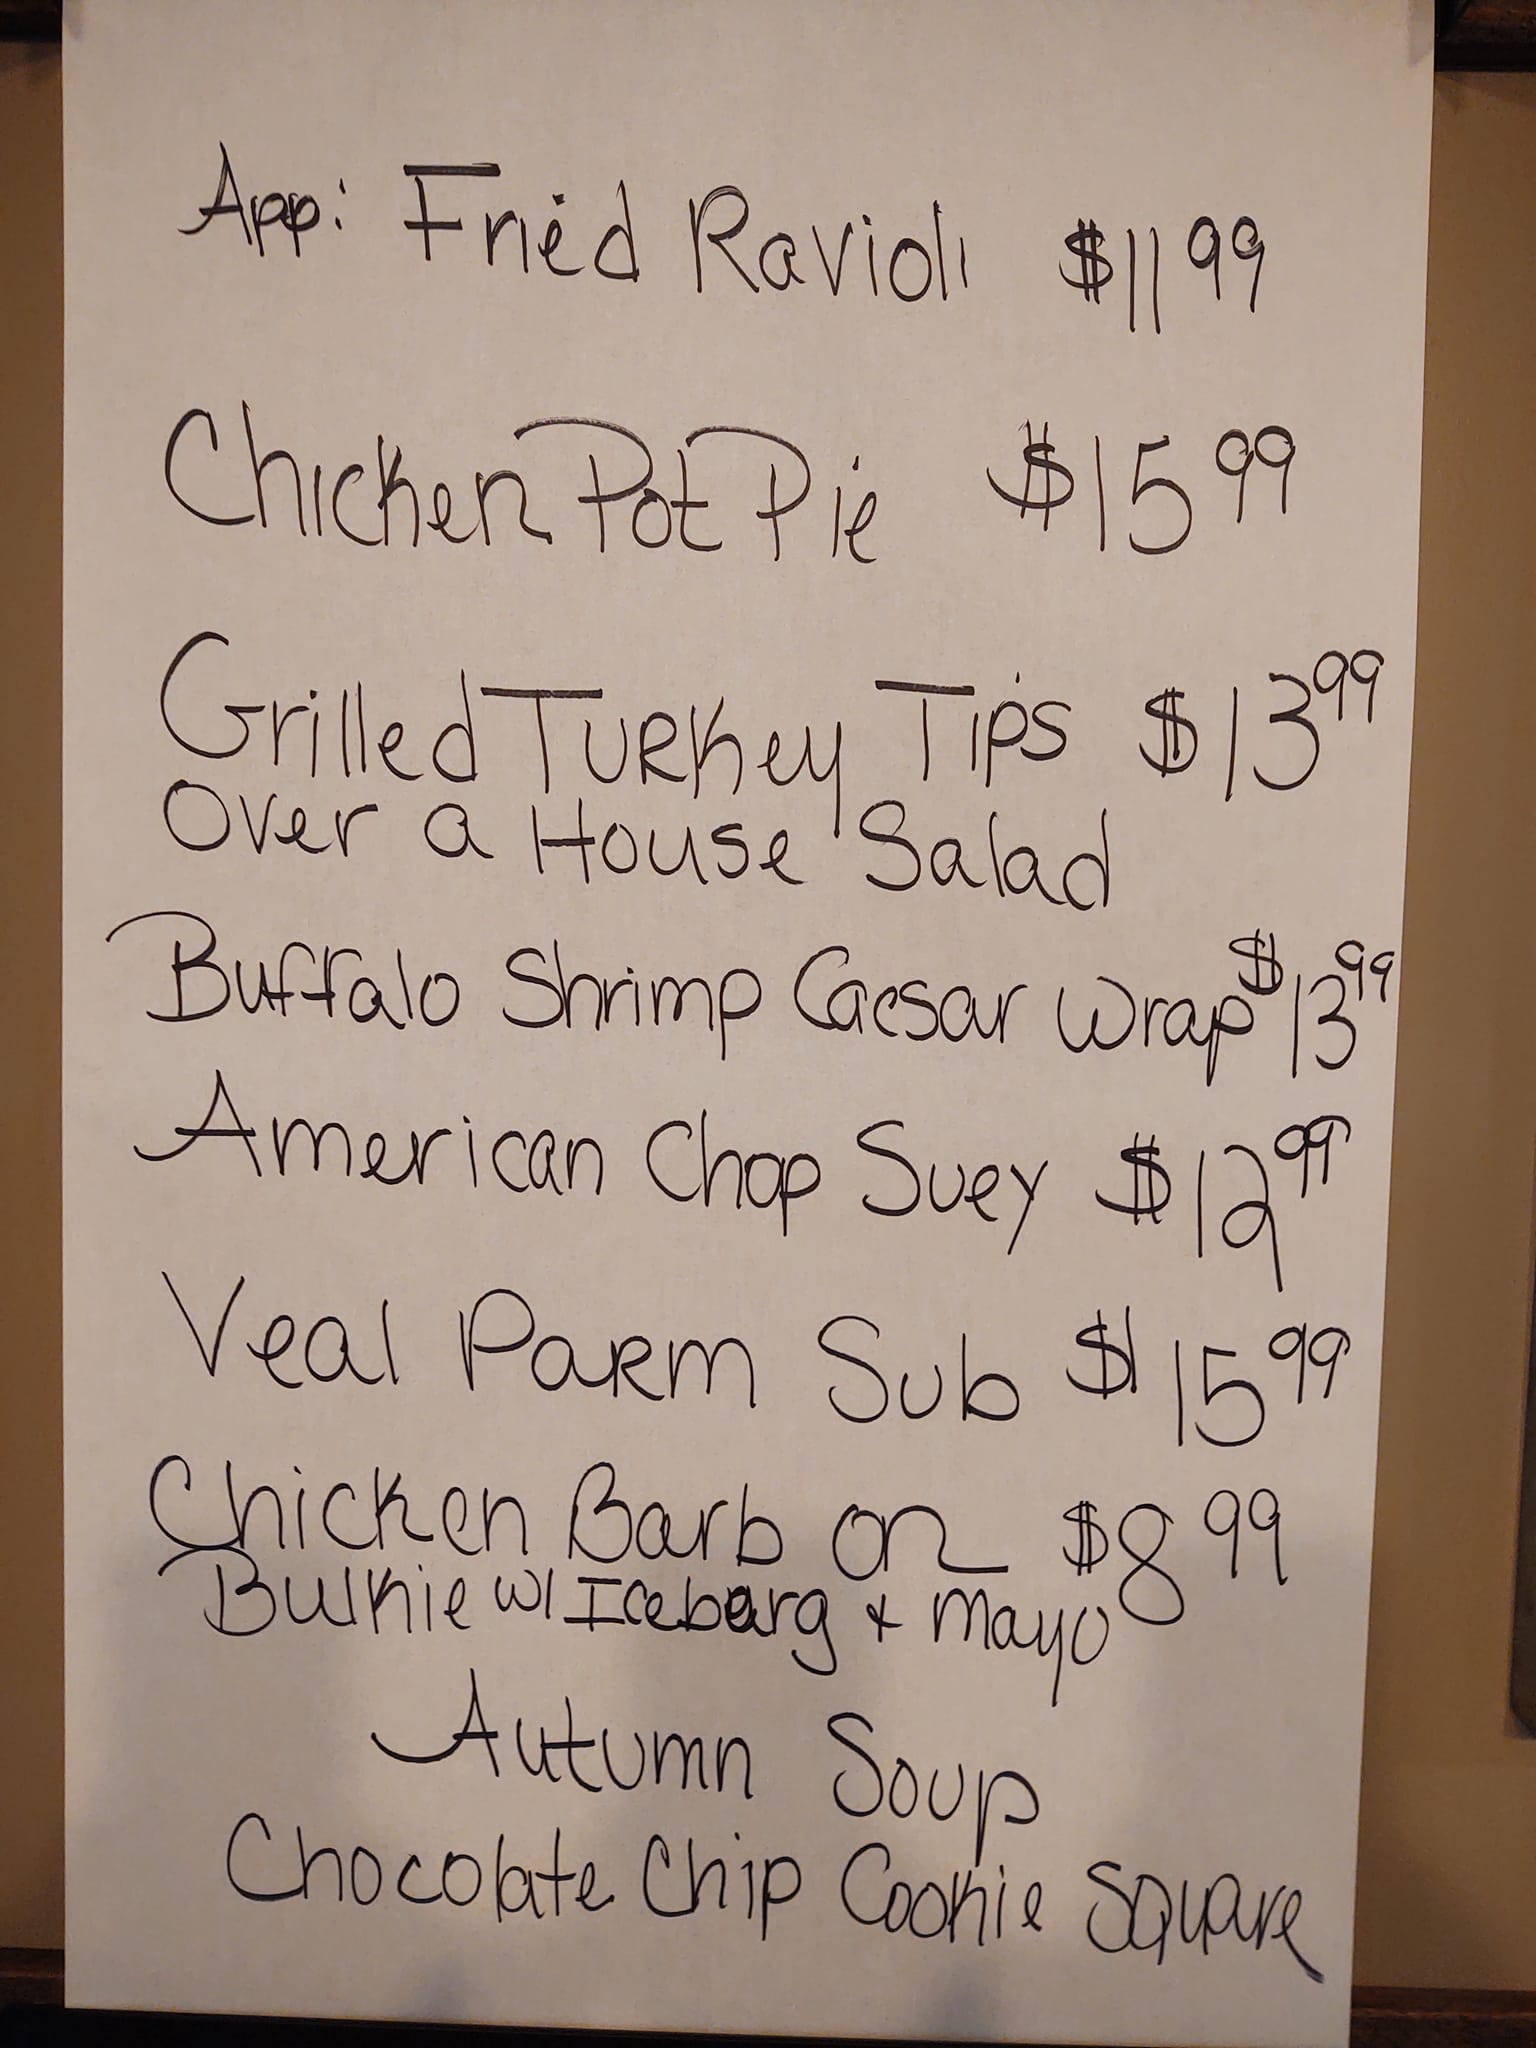 App: Fried Ravioli $11 99
Chicken Pot Pie $15 99
Grilled Turkey Tips $13 99
Over a House Salad
Buffalo Shrimp Caesar Wrap $13 99
American Chop Suey $12 99
Veal Parm Sub $15 99
Chicken Barb on $8 99
Bulkie w/ Iceberg + mayo
Autumn Soup
Chocolate Chip Cookie Square